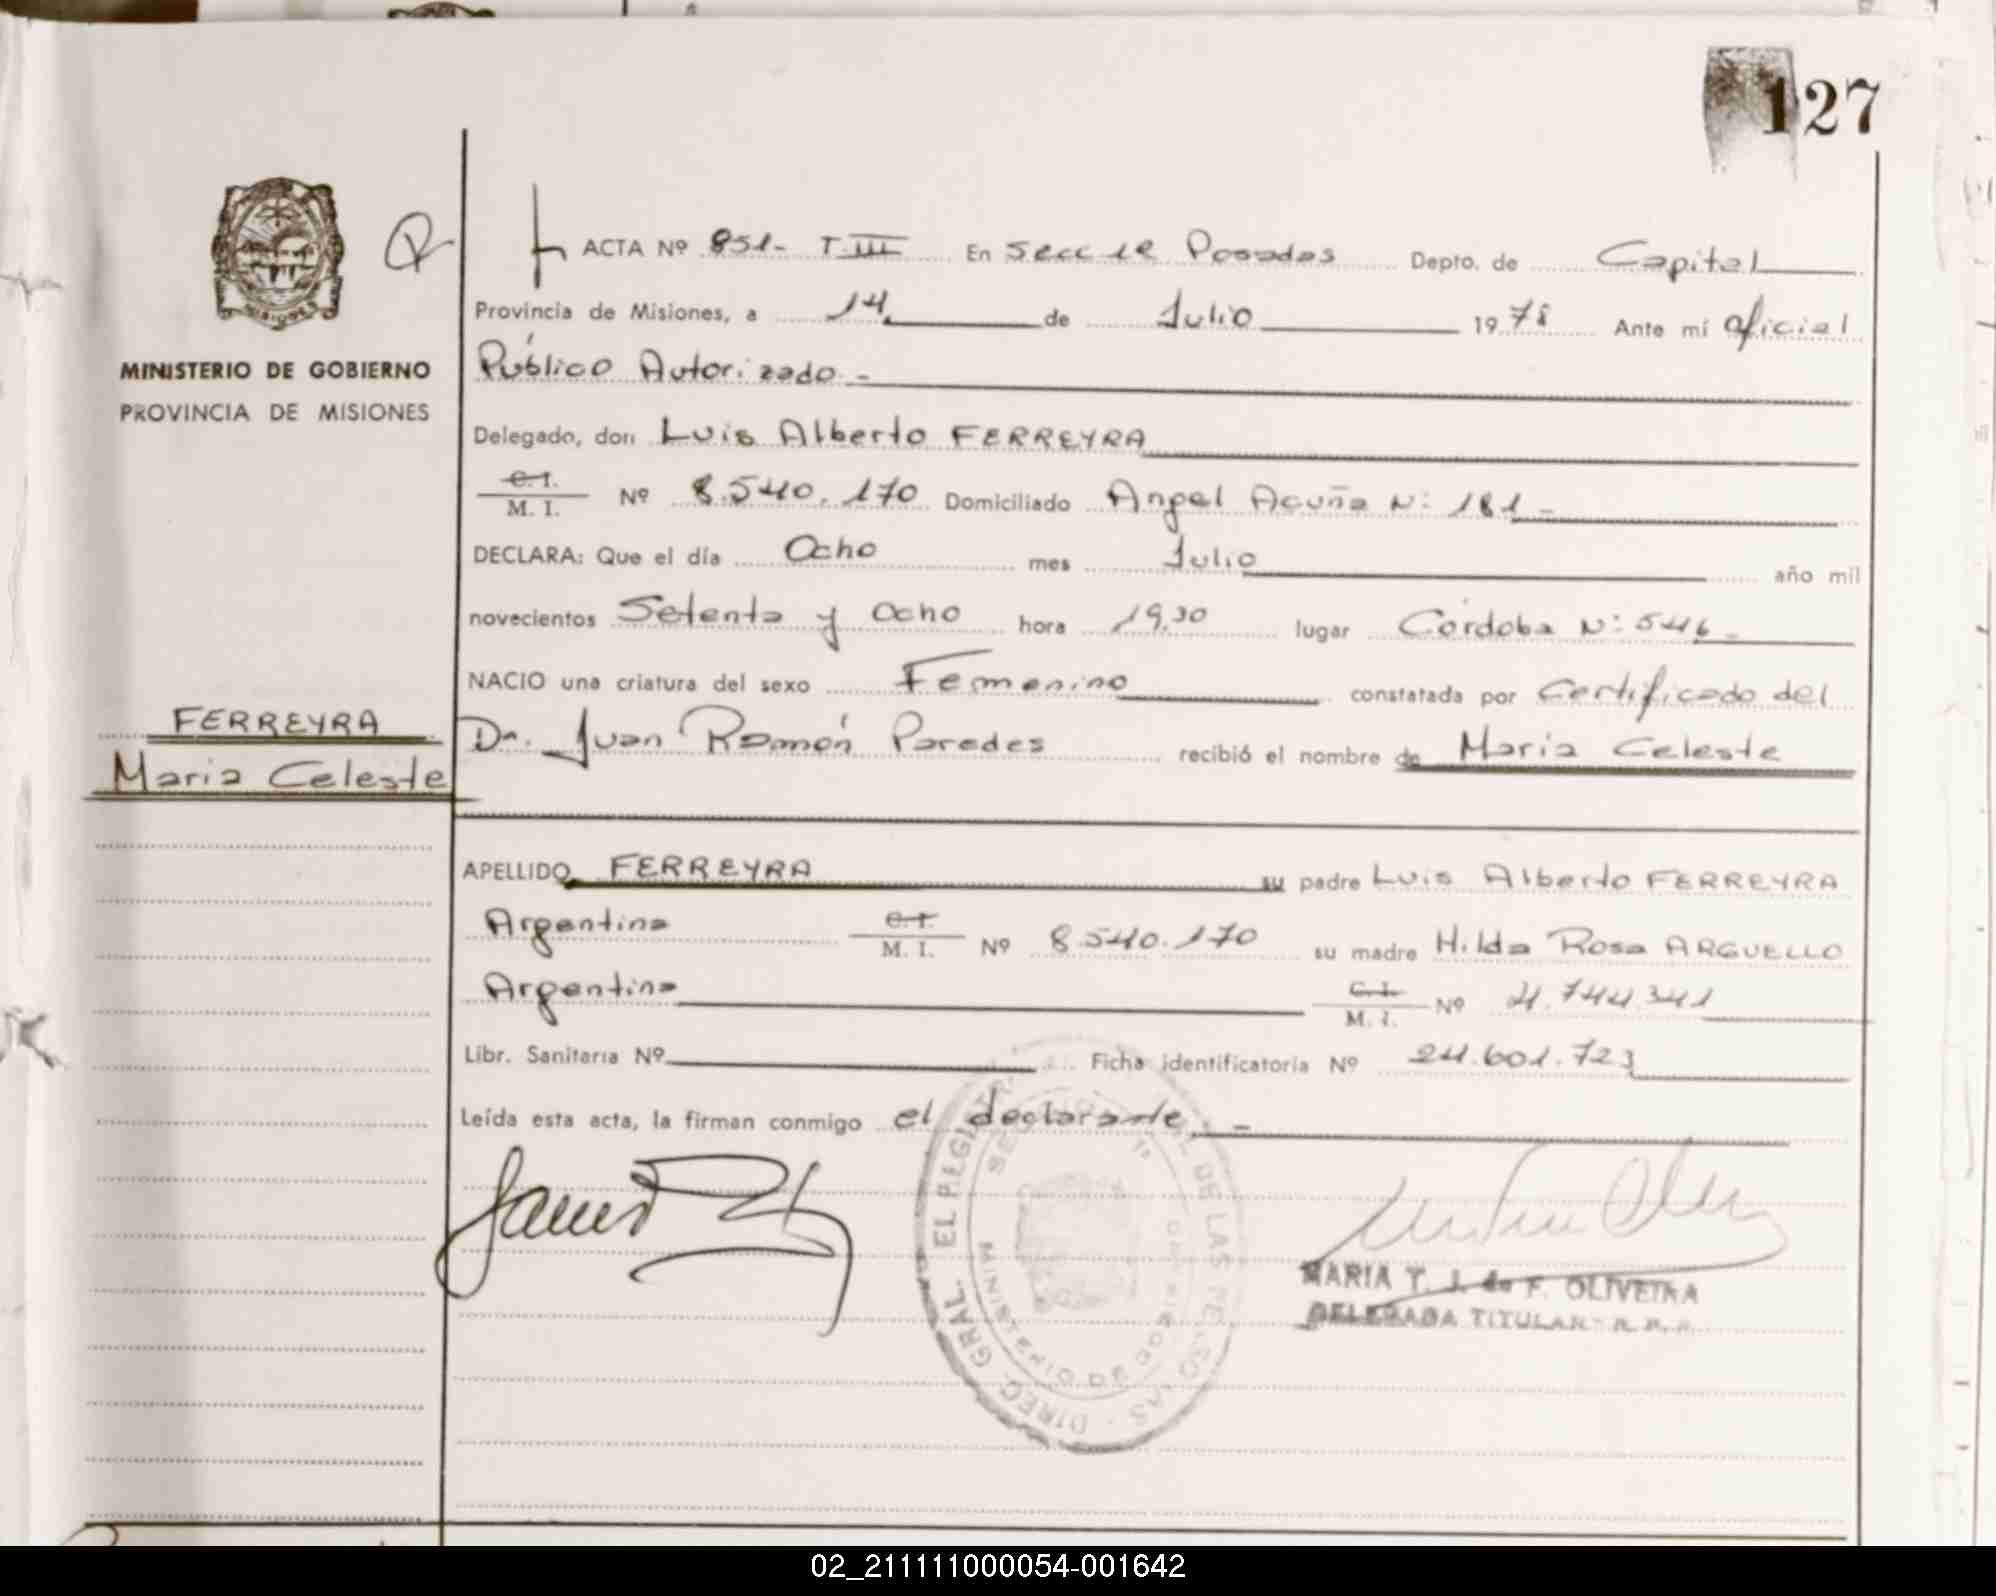 127
ACTA Nº 851- T III En Secc 1ª Posadas Depto. de Capital
Provincia de Misiones, a 14 de Julio 1978 Ante mí oficial
Público Autorizado.-
Delegado, don Luis Alberto FERREYRA
C. I. / M. I. Nº 8.540.170 Domiciliado Angel Acuña Nº 181-
DECLARA: Que el día Ocho mes Julio año mil
novecientos Setenta y Ocho hora 19,30 lugar Córdoba Nº 546-
NACIO una criatura del sexo Femenino constatada por Certificado del
Dr. Juan Ramón Paredes recibió el nombre de Maria Celeste
APELLIDO FERREYRA su padre Luis Alberto FERREYRA
Argentino C. I. / M. I. Nº 8.540.170 su madre Hilda Rosa ARGUELLO
Argentina C. I. / M. I. Nº 4.744.341
Libr. Sanitaria Nº Ficha identificatoria Nº 24.601.723
Leída esta acta, la firman conmigo el declarante.-
MARIA T. J. de F. OLIVEIRA
DELEGADA TITULAR
MISIONES
MINISTERIO DE GOBIERNO
PROVINCIA DE MISIONES
FERREYRA
Maria Celeste
02_211111000054-001642